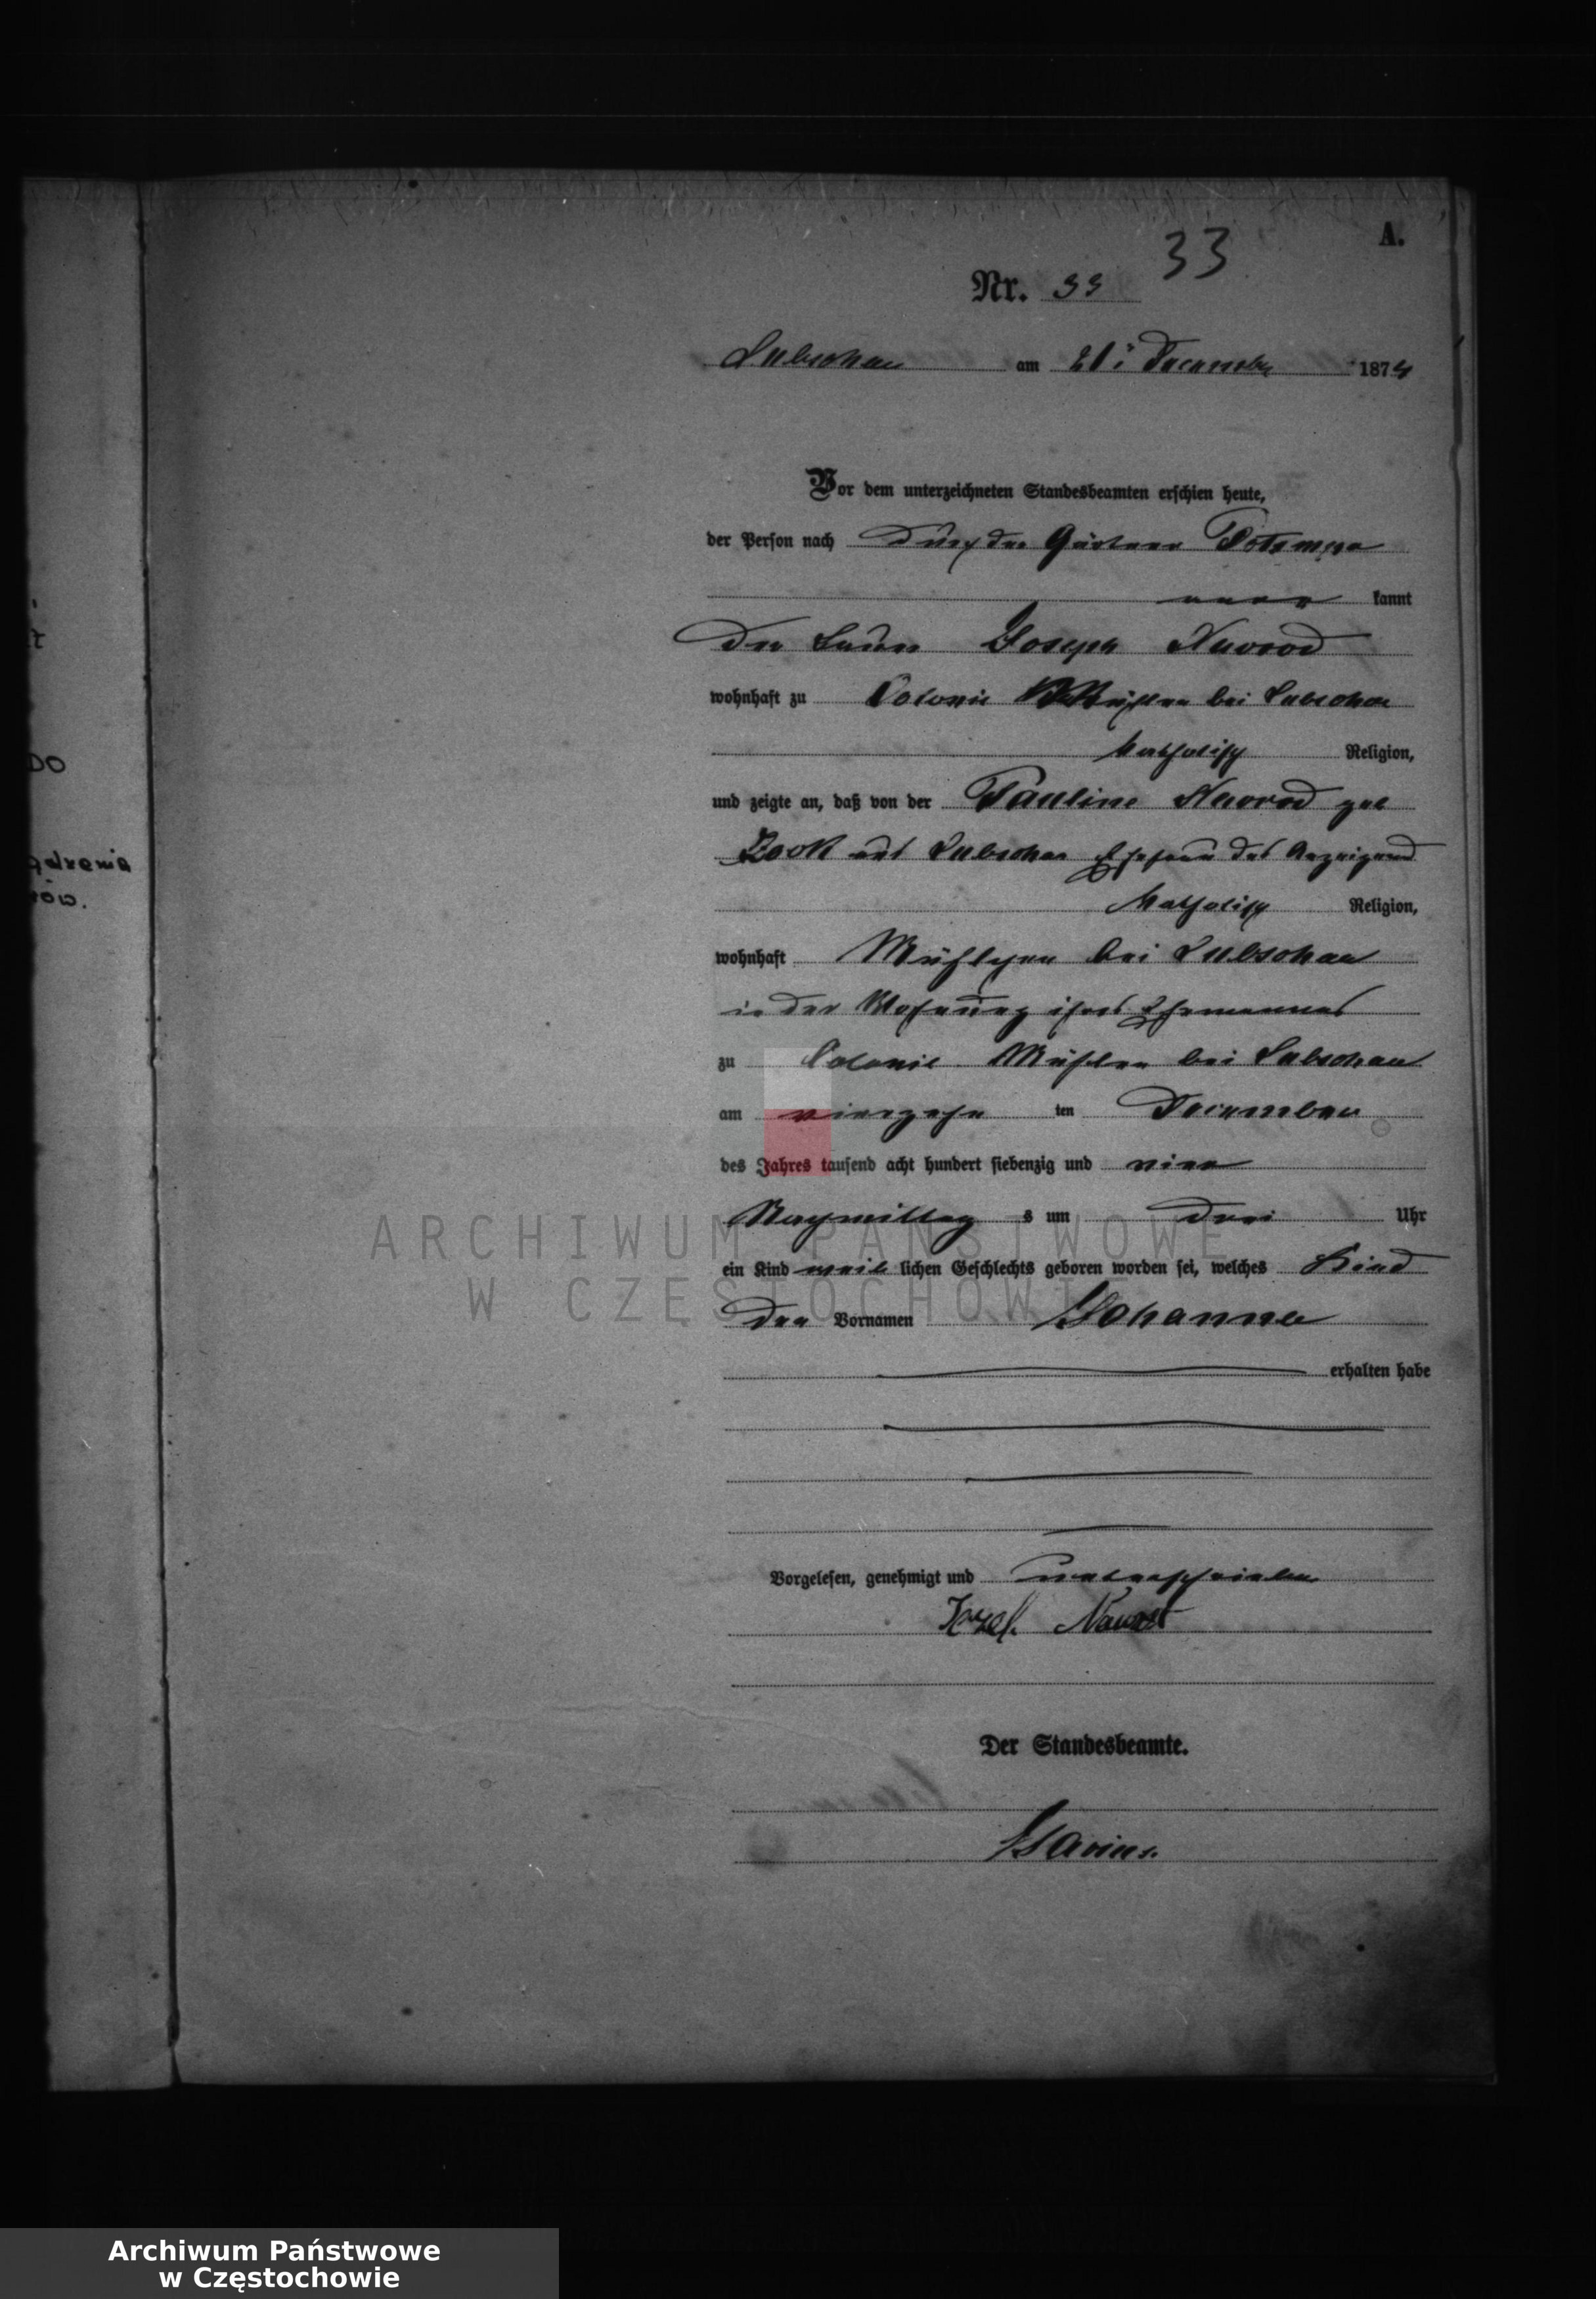 A.
33
Nr. 33
Lubschau am 21t December 1874
Vor dem unterzeichneten Standesbeamten erschien heute,
der Person nach durch den Gärtner Potempa
kannt
der Joseph Nawrod
wohnhaft zu Colonie Mühlchen bei Lubschau
katholisch Religion,
und zeigte an, daß von der Pauline Nawrod geb
aus Lubschau Ehefrau des Anzeigend
katholisch Religion,
wohnhaft Mühlchen bei Lubschau
in der Wohnung ihres Ehemannes
zu Colonie Mühlchen bei Lubschau
am vierzehn ten December
des Jahres tausend acht hundert siebenzig und vier
Nachmittag s um drei Uhr
ein Kind weib lichen Geschlechts geboren worden sei, welches Kind
den Vornamen Johanna
erhalten habe
Vorgelesen, genehmigt und unterschrieben
Jozef Nawrot
Der Standesbeamte.
DO
ów.
ARCHIWUM PAŃSTWOWE
W CZĘSTOCHOWIE
Archiwum Państwowe
w Częstochowie